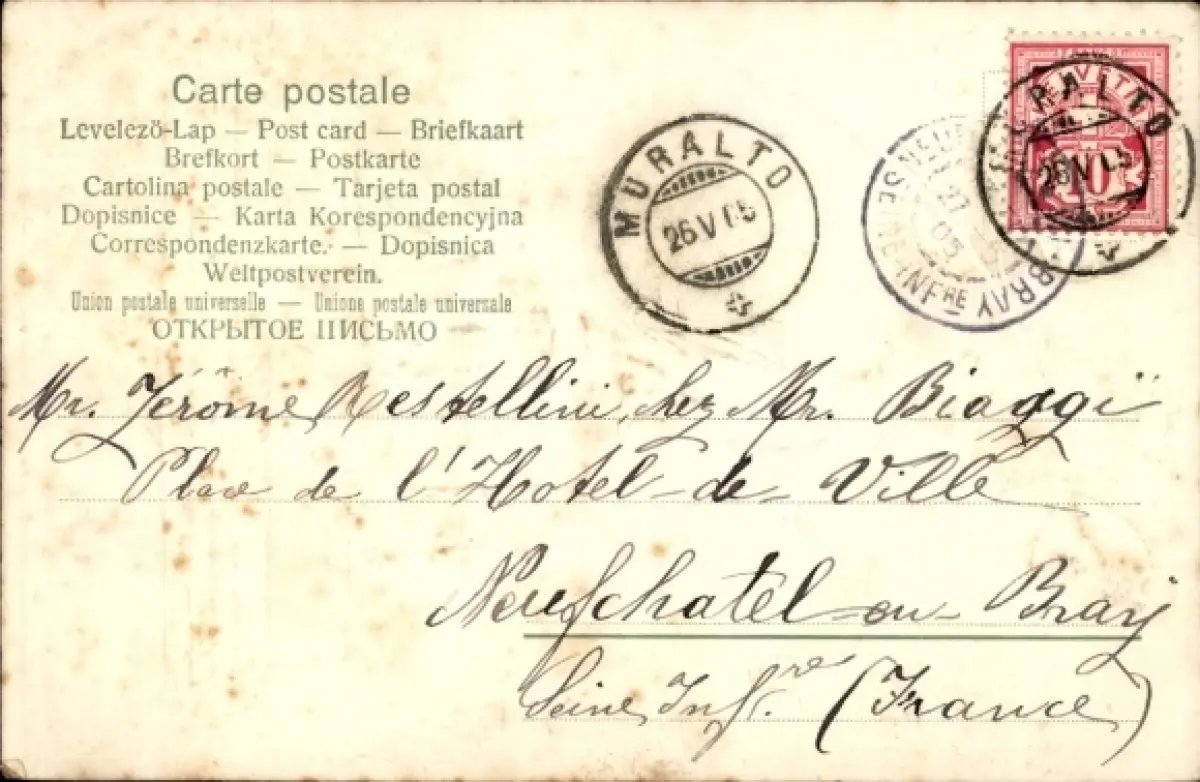 Carte postale
Levelező-Lap — Post card — Briefkaart
Brefkort — Postkarte
Cartolina postale — Tarjeta postal
Dopisnice — Karta Korespondencyjna
Correspondenzkarte. — Dopisnica
Weltpostverein.
Union postale universelle — Unione postale universale
ОТКРЫТОЕ ПИСЬМО
MURALTO
26 V 05
HELVETIA
10
MURALTO
26 V 05
BRAY
INFRE
27
05
Mr. Jérôme Restellini, chez Mr. Biaggi
Place de l'Hotel-de-Ville
Neufchatel-en-Bray
Seine Infre. (France)